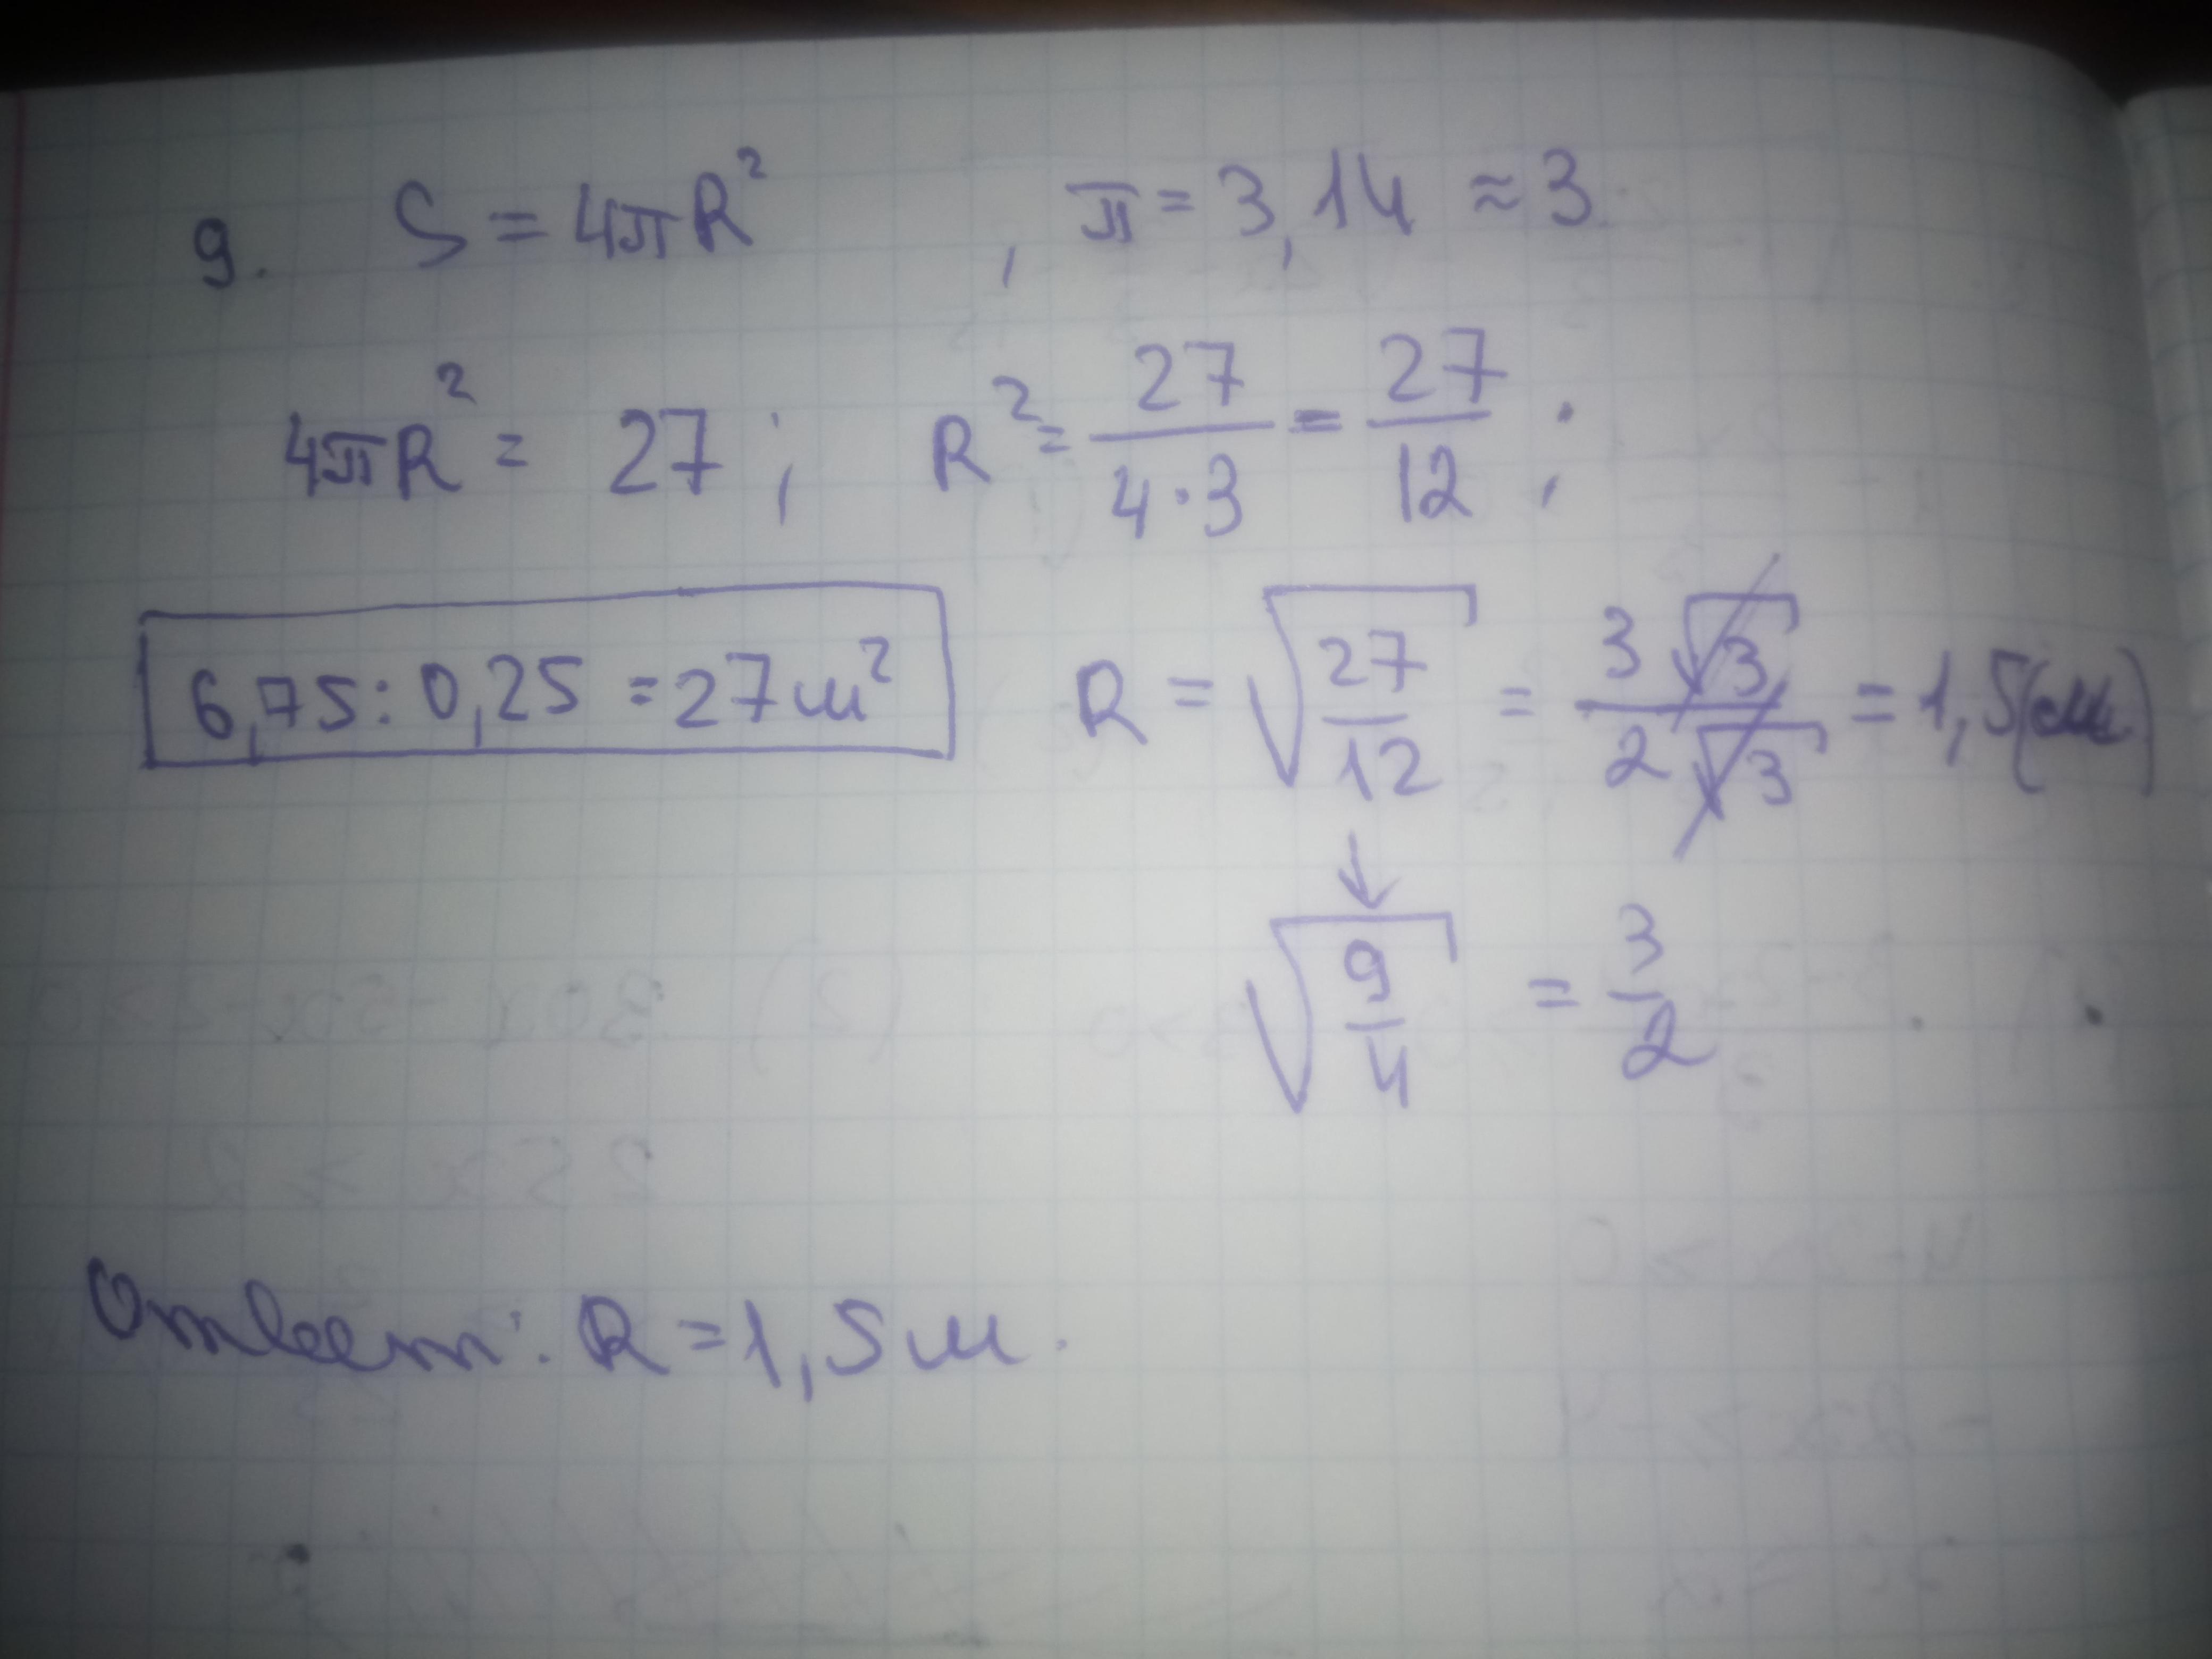 9. S = 4πR² , π = 3,14 ≈ 3
4πR² = 27 ; R² = 27/(4·3) = 27/12 ;
6,75 : 0,25 = 27 м² R = √(27/12) = 3√3/2√3 = 1,5 (м)
↓
√(9/4) = 3/2
Ответ: R = 1,5 м.